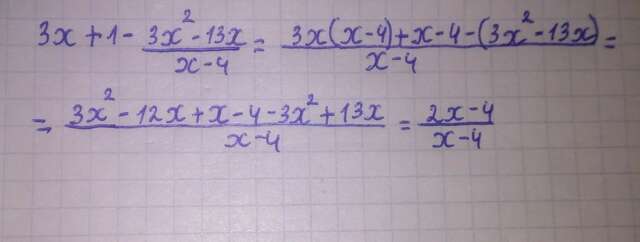 3x + 1 - (3x² - 13x)/(x - 4) = (3x(x - 4) + x - 4 - (3x² - 13x))/(x - 4) =
= (3x² - 12x + x - 4 - 3x² + 13x)/(x - 4) = (2x - 4)/(x - 4)